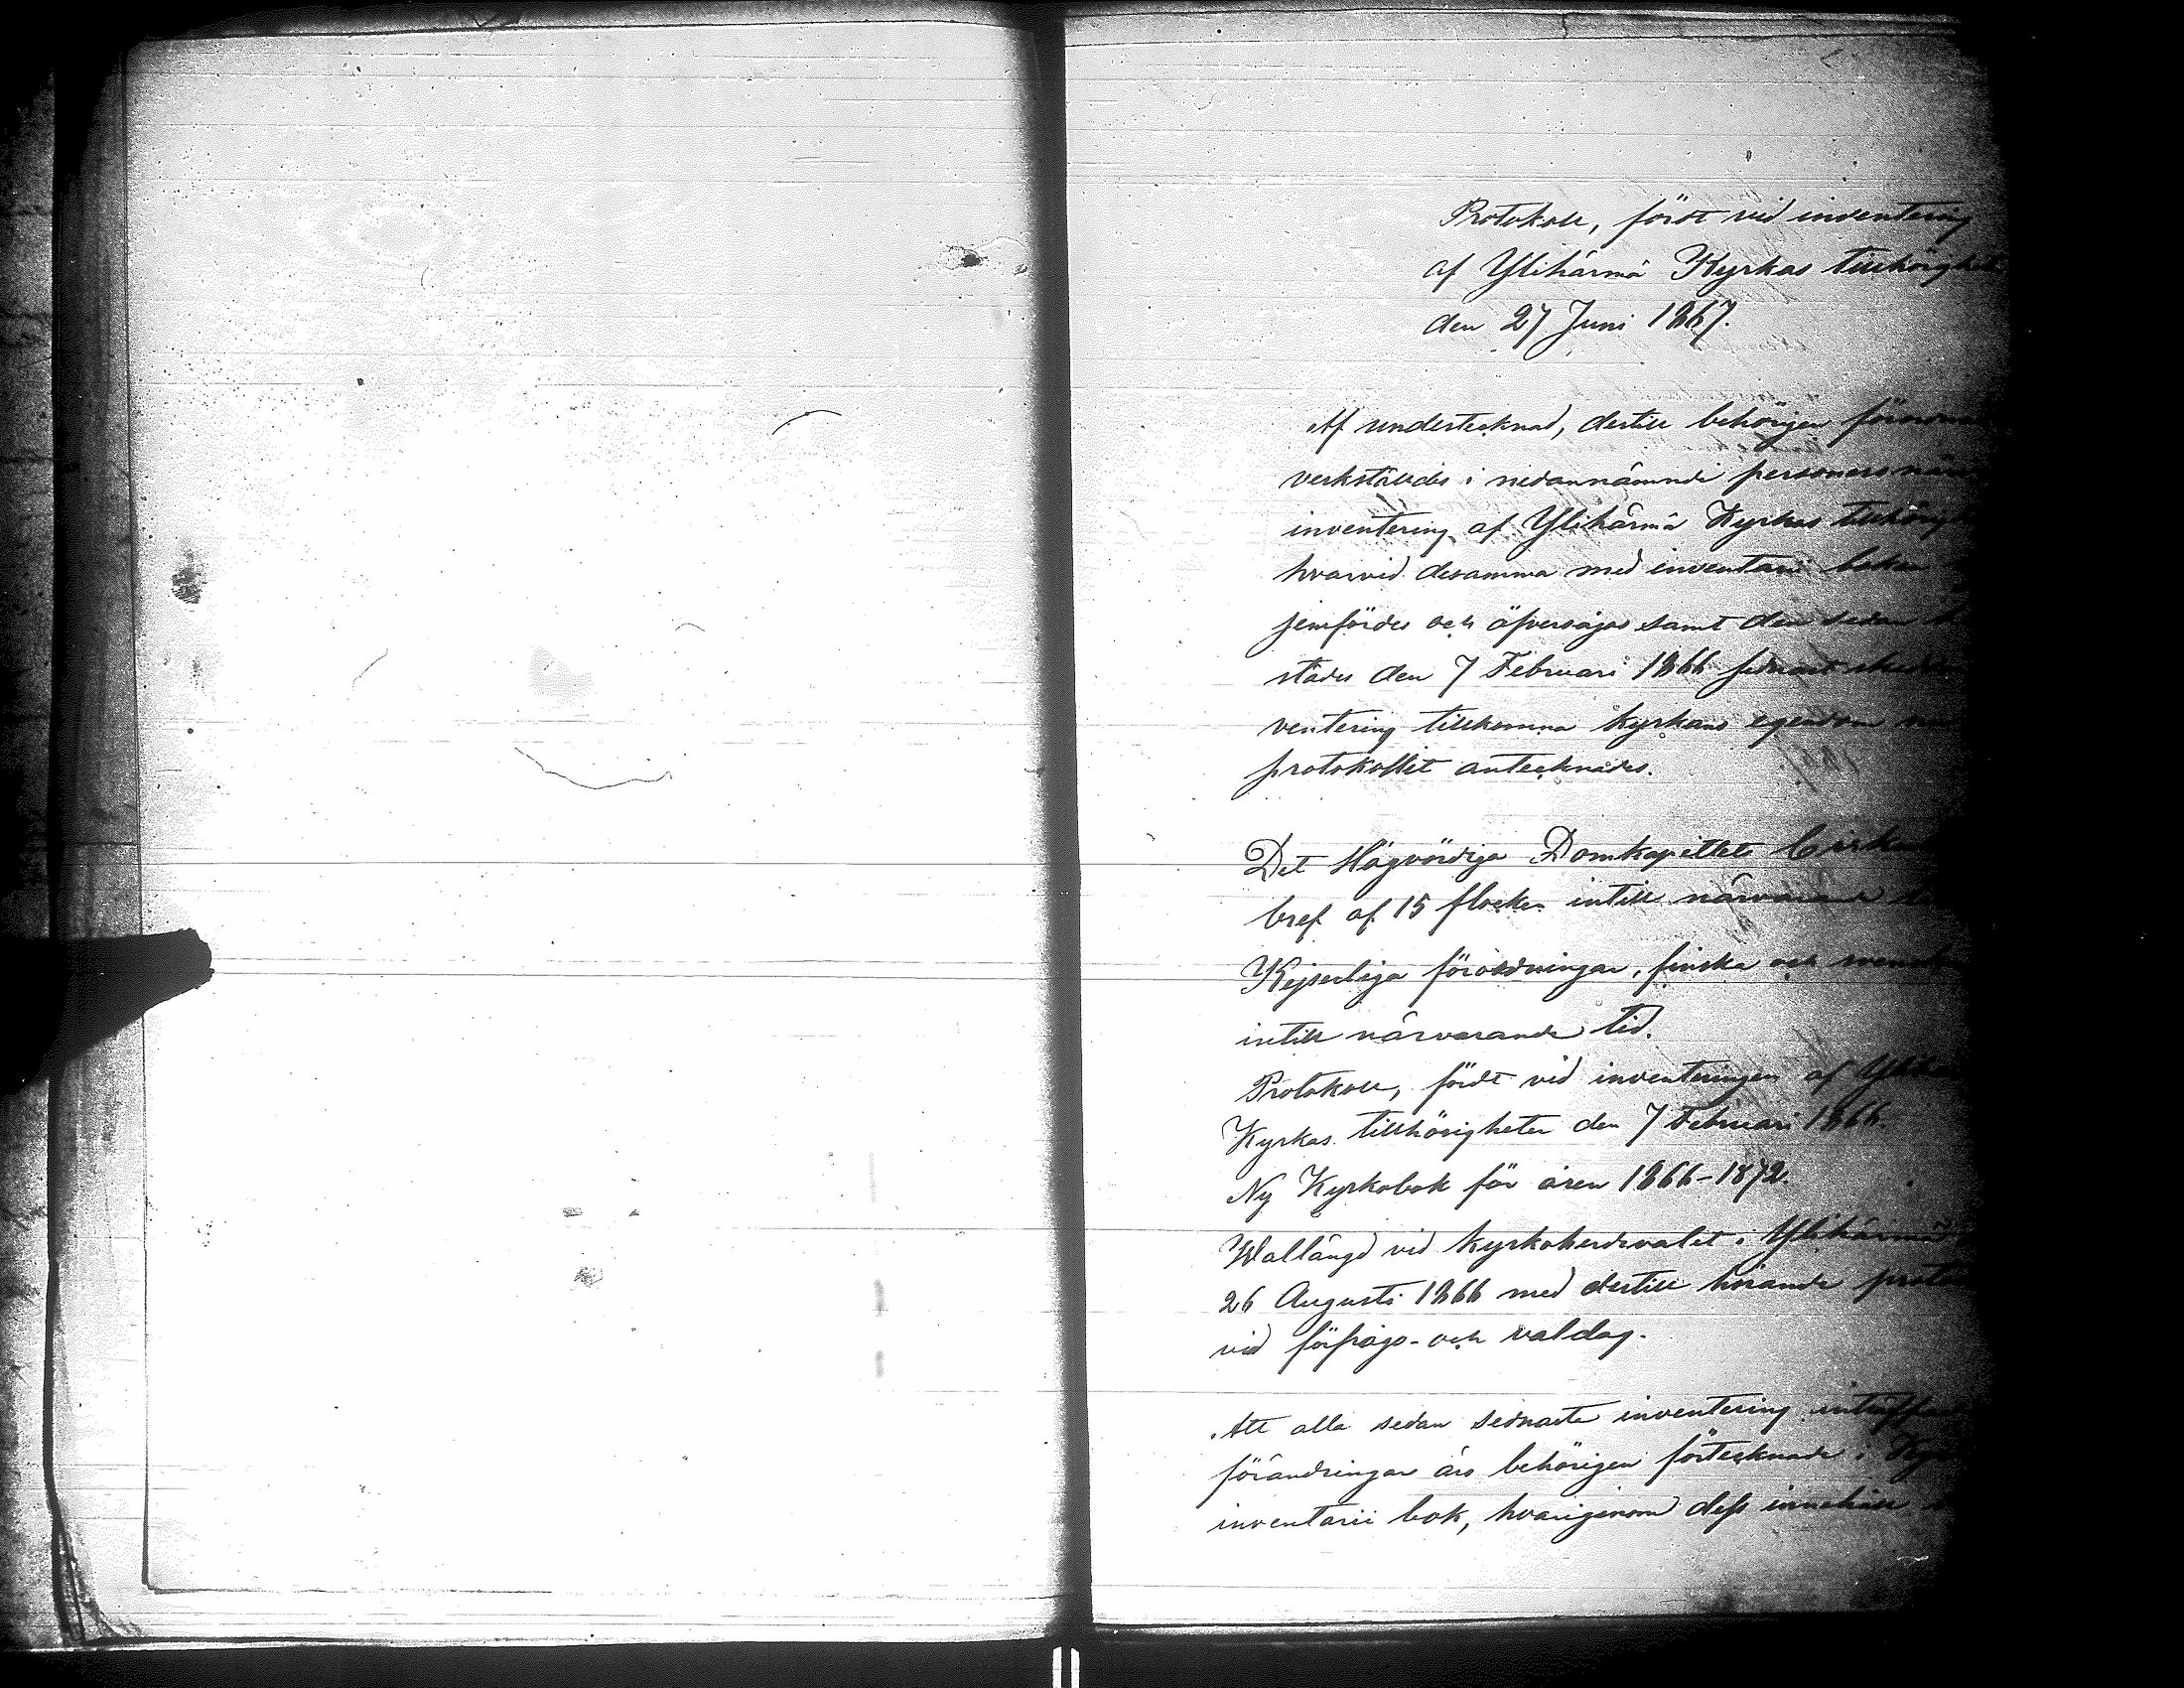 Protokoll, fördt vid inventering
af Ylihärmä Kyrkas tillhörighet
den 27 Juni 1867.
Af undertecknad, dertill behörigen
verkstäldes i nedannämnde personers
inventering af Ylihärmä Kyrkas
hvarvid desamma med inventarii boken
jemfördes och öfversågos samt den sedan
städes den 7 Februari 1866 sednast
ventering tillkomna kyrkans egendom
protokollet antecknades.
Det Högvördiga Domkapitlets
bref af 15 flocken intill närvarande
Kejserliga förordningar, finska och
intill närvarande tid.
Protokoll, fördt vid inventeringen af
Kyrkas tillhörigheter den 7 Februari 1866.
Ny Kyrkobok för åren 1866-1872.
Wallängd vid kyrkoherdevalet i Ylihärmä
26 Augusti 1866 med dertill hörande
vid förfrågs- och valdag.
Att alla sedan sednaste inventering
förändringar äro behörigen förtecknade i
inventarii bok, hvarigenom dess innehåll